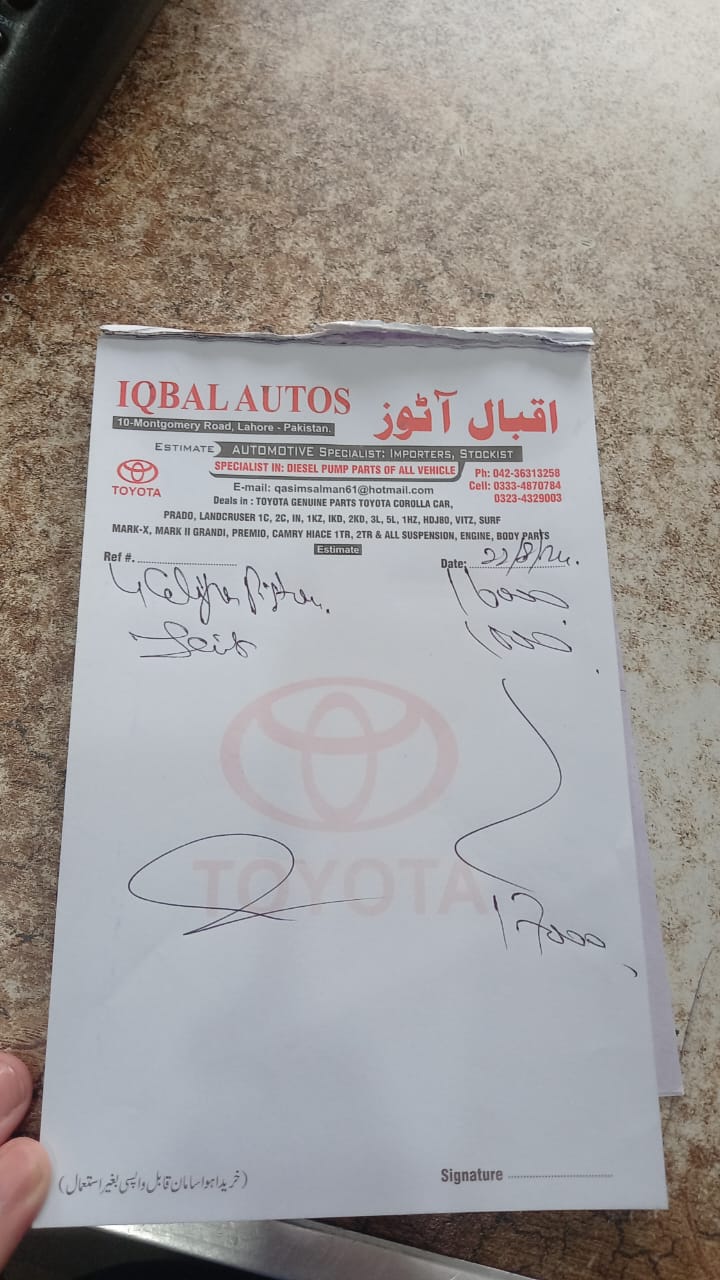 IQBAL AUTOS
اقبال آٹوز
10-Montgomery Road, Lahore - Pakistan.
ESTIMATE AUTOMOTIVE SPECIALIST: IMPORTERS, STOCKIST
SPECIALIST IN: DIESEL PUMP PARTS OF ALL VEHICLE
TOYOTA
E-mail: qasimsalman61@hotmail.com
Ph: 042-36313258
Cell: 0333-4870784
0323-4329003
Deals in : TOYOTA GENUINE PARTS TOYOTA COROLLA CAR,
PRADO, LANDCRUSER 1C, 2C, IN, 1KZ, IKD, 2KD, 3L, 5L, 1HZ, HDJ80, VITZ, SURF
MARK-X, MARK II GRANDI, PREMIO, CAMRY HIACE 1TR, 2TR & ALL SUSPENSION, ENGINE, BODY PARTS
Estimate
Ref #.
Date: 22/8/24.
4 Caliper Piston. 16000
1000
TOYOTA
17000
(خریدا ہوا سامان قابل واپسی بغیر استعمال)
Signature